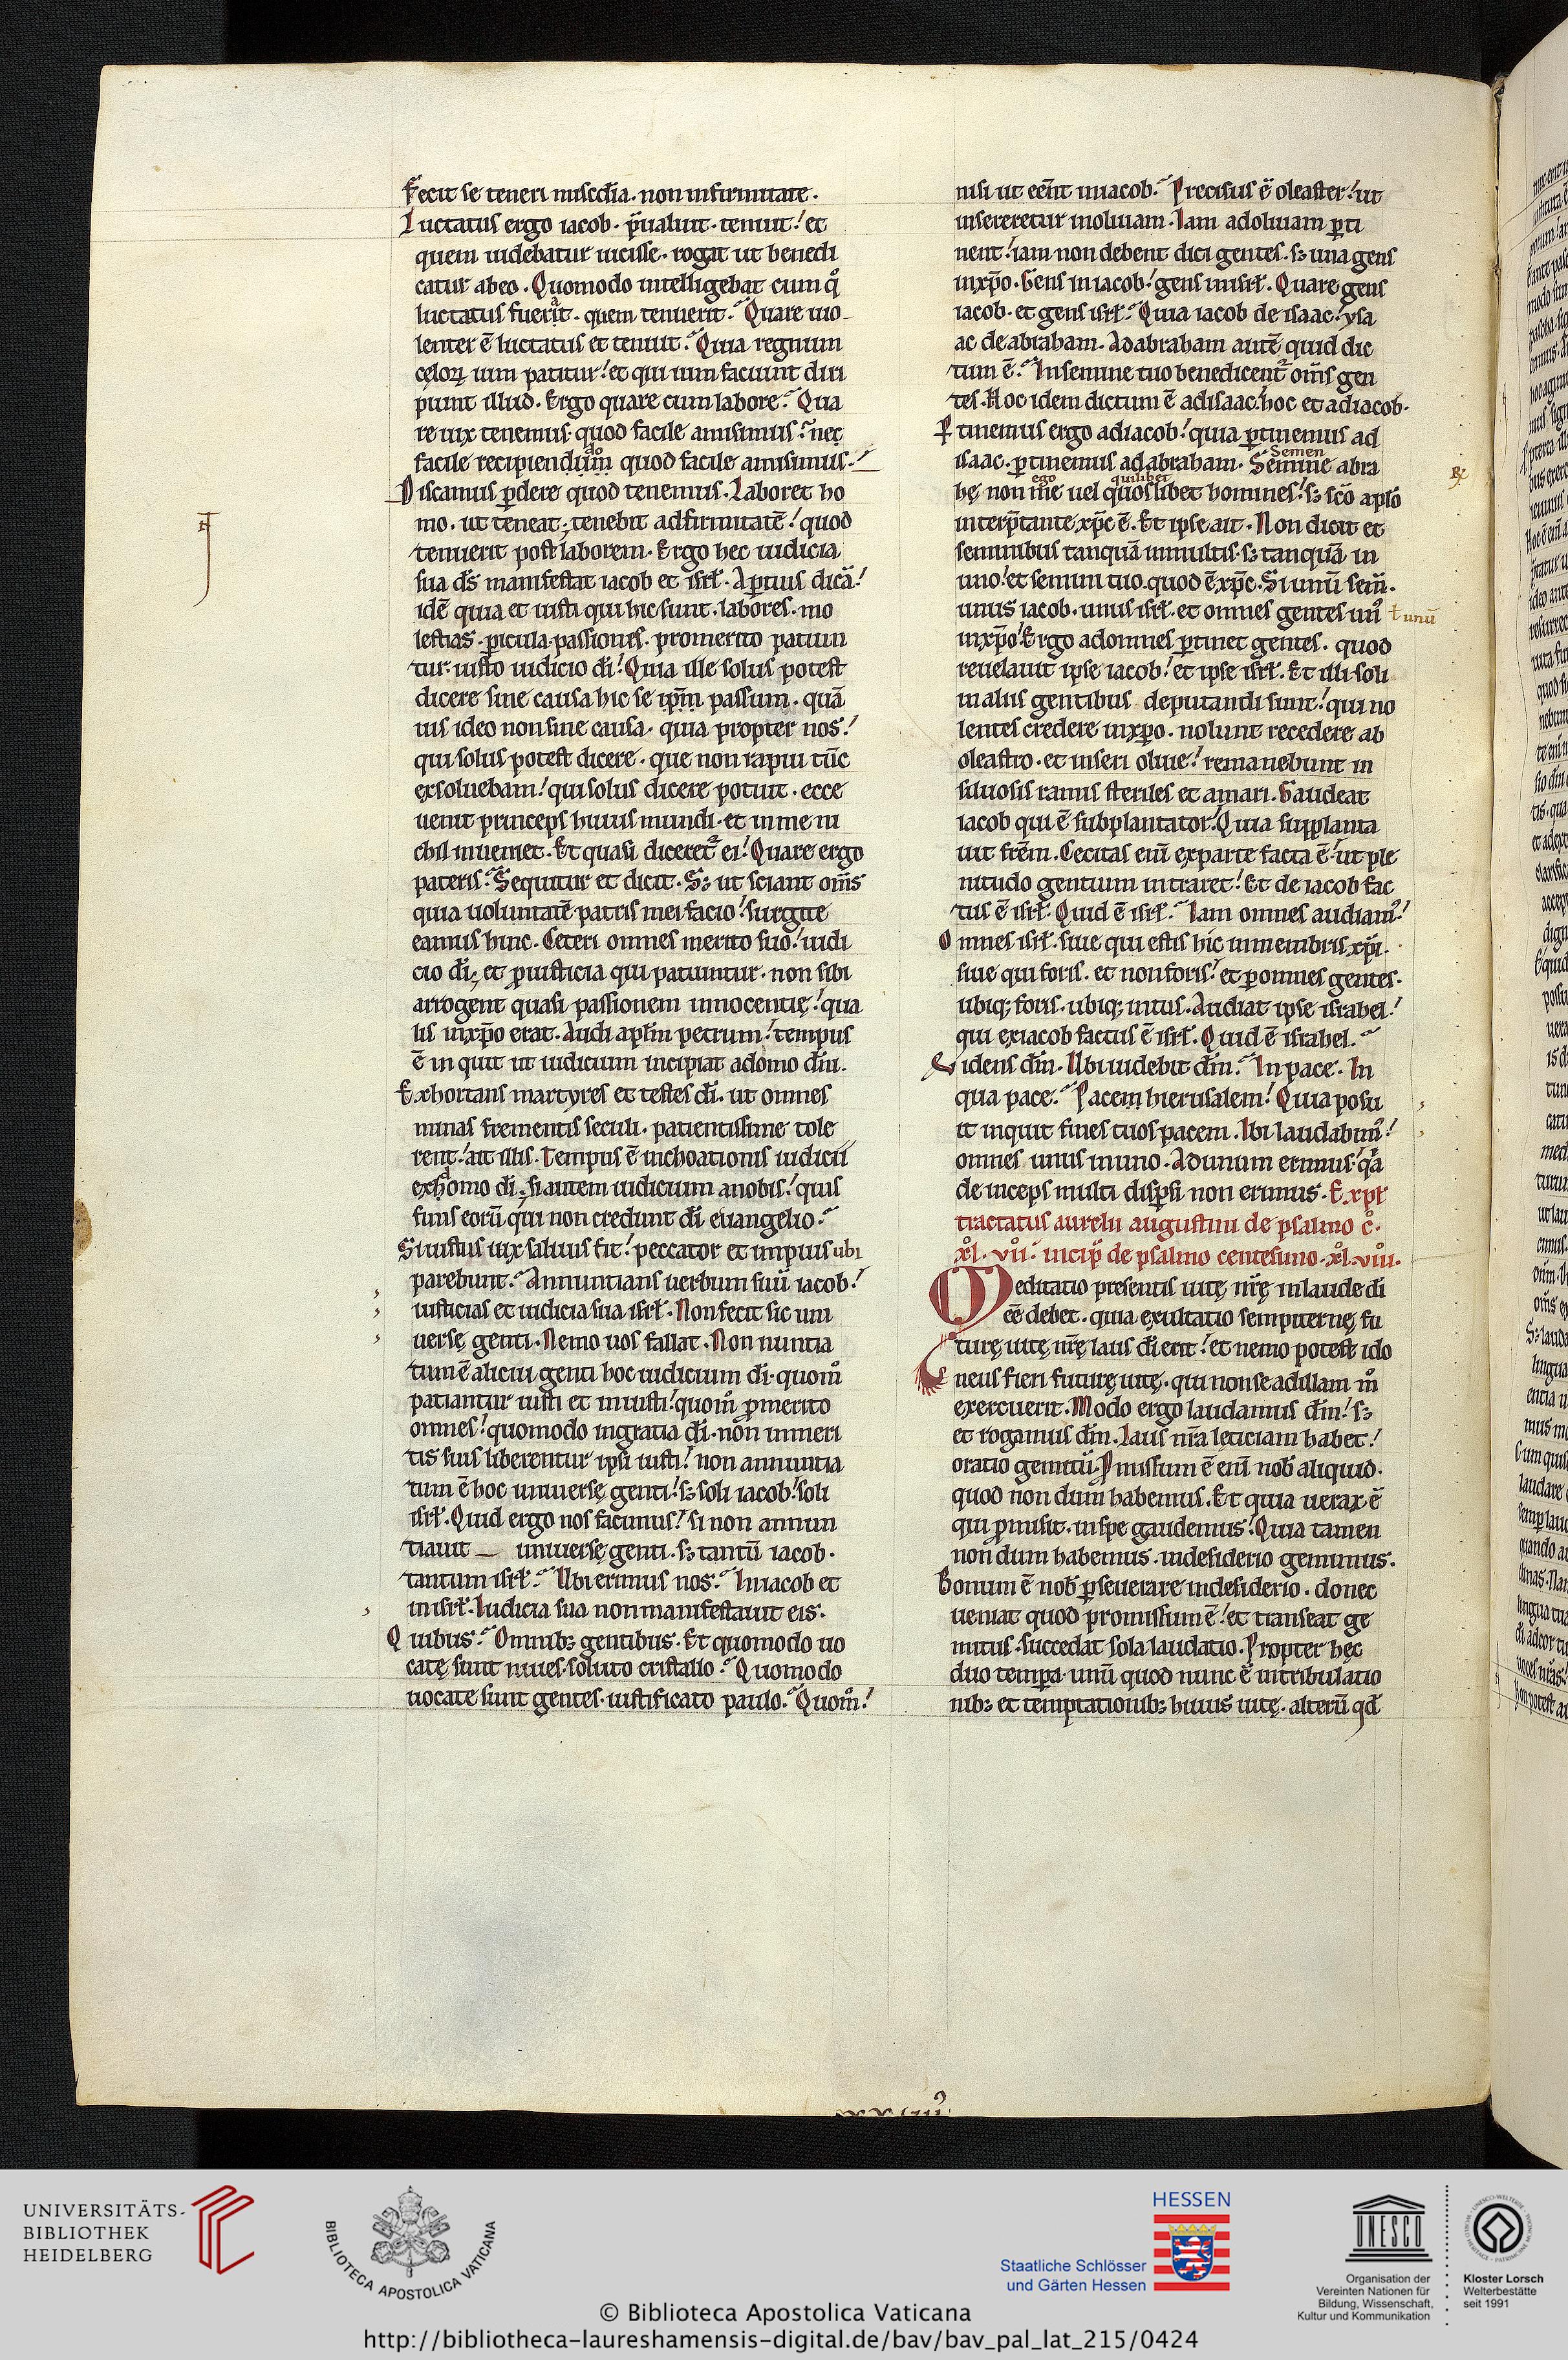 Fecit se teneri misc̄dia. non infirmitate.
Luctatus ergo iacob. p̄ualuit. tenuit! et
quem uidebatur uicisse. rogat ut benedi
catur abeo. Quomodo intelligebat cum qͦ
luctatus fuerat. quem tenuerit.? Quare uio
lenter ē luctatus et tenuit.? Quia regnum
cęloꝝ uim patitur! et qui uim faciunt diri
piunt illud. Ergo quare cum labore.? Qua
re uix tenemus quod facile amisimus.? nec
facile recipiendum quod facile amisimus.
Discamus ꝑdere quod tenemus. Laboret ho
mo. ut teneat; tenebit ad firmitatē! quod
tenuerit post laborem. Ergo hec iudicia
sua d̄s manifestat iacob et isrł. Apertius dicā!
idē quia et iusti qui hic sunt. labores. mo
lestias. ꝑicula. passiones. promerito patiun
tur. iusto iudicio d̄i! Quia ille solus potest
dicere sine causa hic se ip̄m passum. quā
uis ideo non sine causa. quia propter nos!
qui solus potest dicere. que non rapui tūc
exsoluebam! qui solus dicere potuit. ecce
uenit princeps huius mundi. et in me ni
chil inueniet. Et quasi diceret̄ ei! Quare ergo
pateris.? Sequitur et dicit. Sꝫ ut sciant om̄s
quia uoluntatē patris mei facio! surgite
eamus hinc. Ceteri omnes merito suo! iudi
cio d̄i; et ꝓ iusticia qui patiuntur. non sibi
arrogent quasi passionem innocentię! qua
lis inxp̄o erat. Audi apłm petrum! tempus
ē inquit ut iudicium incipiat adomo d̄ni.
Exhortans martyres et testes d̄i. ut omnes
minas frementis seculi. patientissime tole
rent! ait illis. Tempus ē inchoationis iudicii
exhomo d̄i. si autem iudicium anobis! quis
finis eorū qui non credunt d̄i euangelio.?
Si iustus uix saluus fit! peccator et impius ubi
parebunt.? Annuntians uerbum suū iacob!
iusticias et iudicia sua isrł. Non fecit sic uni
uersę genti. Nemo uos fallat. Non nuntia
tum ē alicui genti hoc iudicium d̄i. quom̊
patiantur iusti et iniusti! quom̊ ꝓmerito
omnes! quomodo ingratia d̄i. non inmeri
tis suis liberentur ipsi iusti! non annuntia
tum ē hoc uniuersę genti! sꝫ soli iacob! soli
isrł. Quid ergo nos facimus! si non annun
tiauit uniuersę genti. sꝫ tantū iacob.
tantum isrł.? Ubi erimus nos.? Iniacob et
in isrł. Iudicia sua non manifestauit eis.
Quibus.? Omnibꝫ gentibus. Et quomodo uo
catę sunt niues. soluto cristallo.? Quomodo
uocate sunt gentes. iustificato paulo.? Quom̊!
nisi ut eēnt iniacob.? Precisus ē oleaster! ut
insereretur inoliuam. Iam adoliuam ꝑti
nent! iam non debent dici gentes. sꝫ una gens
inxp̄o. Gens iniacob! gens inisrł. Quare gens
iacob. et gens isrł.? Quia iacob de isaac! ysa
ac de abraham. Ad abraham autē quid dic
tum ē.? In semine tuo benedicent̄ om̄s gen
tes. Hoc idem dictum ē adisaac. hoc et adiacob.
Ꝑtinemus ergo adiacob! quia ꝑtinemus ad
isaac. ꝑtinemus ad abraham. Semine abra
Semen
hę non me uel quoslibet homines! sꝫ sc̄o apło
ego quilibet
interp̄tante xp̄c ē. Et ipse ait. Non dicit et
seminibus tanquā inmultis. sꝫ tanquā in
uno! et semini tuo. quod ē xp̄c. Si unū sem̄.
unus iacob. unus isrł. et omnes gentes un᷒ ł unū
inxp̄o! Ergo adomnes ꝑtinet gentes. quod
reuelauit ipse iacob! et ipse isrł. Et illi soli
in aliis gentibus deputandi sunt! qui no
lentes credere inxp̄o. nolunt recedere ab
oleastro. et inseri oliue! remanebunt in
siluosis ramis steriles et amari. Gaudeat
iacob qui ē subplantator! Quia supplanta
uit frēm. Cecitas eni exparte facta ē! ut ple
nitudo gentium intraret! Et de iacob fac
tus ē isrł. Quid ē isrł.? Iam omnes audiam᷒!
Omnes isrł. siue qui estis hic inmembris xp̄i.
siue qui foris. et non foris! et ꝑ omnes gentes.
ubiqꝫ foris. ubiqꝫ intus. Audiat ipse israhel!
qui exiacob factus ē isrł. Quid ē israhel.?
Videns d̄m. Ubi uidebit d̄m.? In pace. In
qua pace.? Pacem hierusalem! Quia posu
it inquit fines tuos pacem. Ibi laudabim᷒!
omnes unus inuno. Adunum erimus! qͣa
de inceps multi disꝑsi non erimus. Expł
tractatus aurelii augustini de psalmo c̊.
xͦl. vii̊. incip̄ de psalmo centesimo. xͦl. viii̊.
Meditatio presentis uitę nr̄ę inlaude d̄i
eē debet. quia exultatio sempiternę fu
turę uitę nr̄ę laus d̄i erit! et nemo potest ido
neus fieri futurę uitę. qui non se adillam m̊
exercuerit. Modo ergo laudamus d̄m! sꝫ
et rogamus d̄m. Laus nr̄a lęticiam habet!
oratio gemitū. Ꝓmissum ē eni nob̄ aliquid.
quod non dum habemus. Et quia uerax ē
qui ꝓmisit. inspe gaudemus! Quia tamen
non dum habemus. indesiderio gemimus.
Bonum ē nob̄ ꝑseuerare indesiderio. donec
ueniat quod promissum ē! et transeat ge
mitus. succedat sola laudatio. Propter hęc
duo tempa. unū quod nunc ē intribulatio
nibꝫ et temptationibꝫ huius uitę. alterū qd̄
UNIVERSITÄTS-
BIBLIOTHEK
HEIDELBERG
BIBLIOTECA APOSTOLICA VATICANA
HESSEN
Staatliche Schlösser
und Gärten Hessen
UNESCO
Organisation der
Vereinten Nationen für
Bildung, Wissenschaft,
Kultur und Kommunikation
Kloster Lorsch
Welterbestätte
seit 1991
© Biblioteca Apostolica Vaticana
http://bibliotheca-laureshamensis-digital.de/bav/bav_pal_lat_215/0424